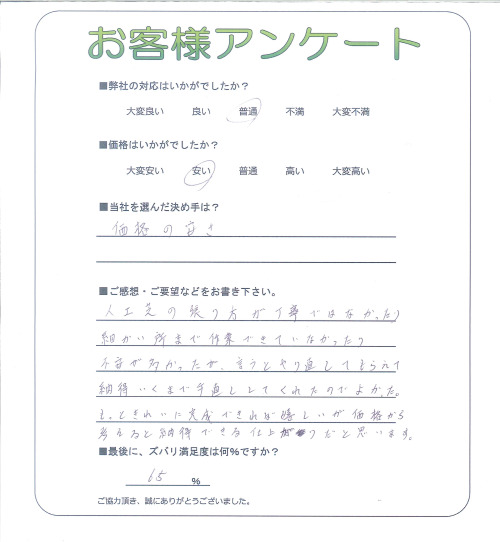 お客様アンケート
■弊社の対応はいかがでしたか?
大変良い 良い 普通 不満 大変不満
■価格はいかがでしたか?
大変安い 安い 普通 高い 大変高い
■当社を選んだ決め手は?
価格の安さ
■ご感想・ご要望などをお書き下さい。
人工芝の張り方が丁寧ではなかったり
細かい所まで作業できていなかったり
不安が多かったが、言うとやり直してもらえて
納得いくまで手直ししてくれたのでよかった。
もっときれいに完成できれば嬉しいが価格から
考えると納得できる仕上がりだと思います。
■最後に、ズバリ満足度は何%ですか?
65 %
ご協力頂き、誠にありがとうございました。